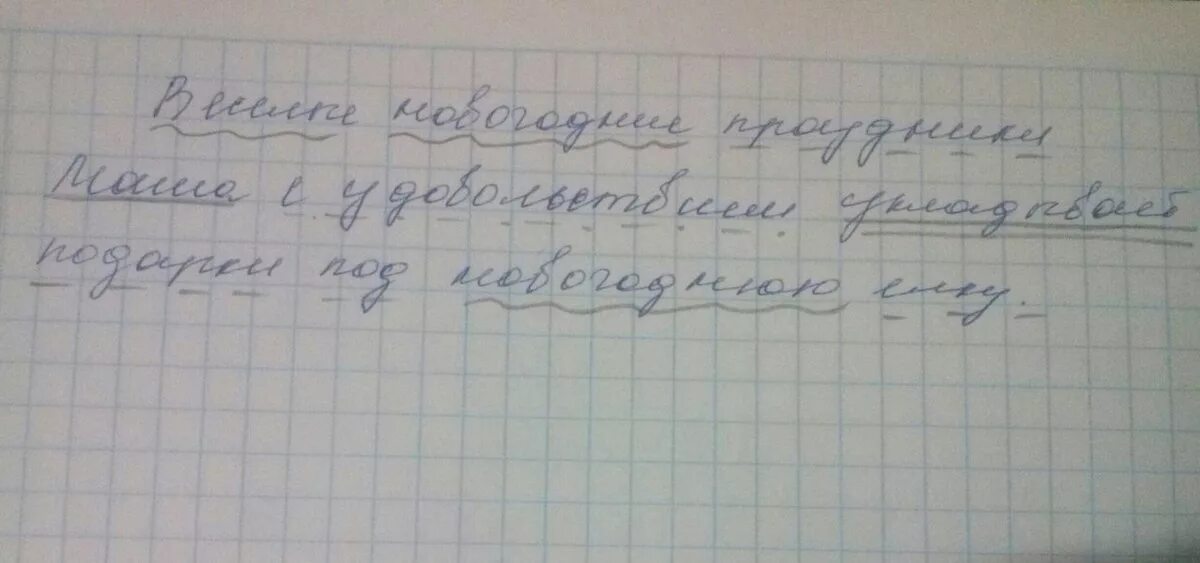 новогодние праздники
Маша с удовольствием укладывает
подарки под новогоднюю елку.